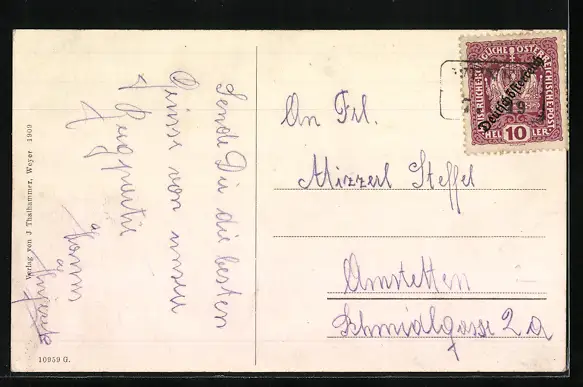 Sende Dir die besten
Grüsse von unserer
Verlag von J Thalhammer, Weyer 1909
10959 G.
KAISERLICHE KÖNIGLICHE ÖSTERREICHISCHE POST
Deutschösterreich
10
HELLER
An Frl.
Mizzerl Steffel
Amstetten
Schmidlgasse 2a